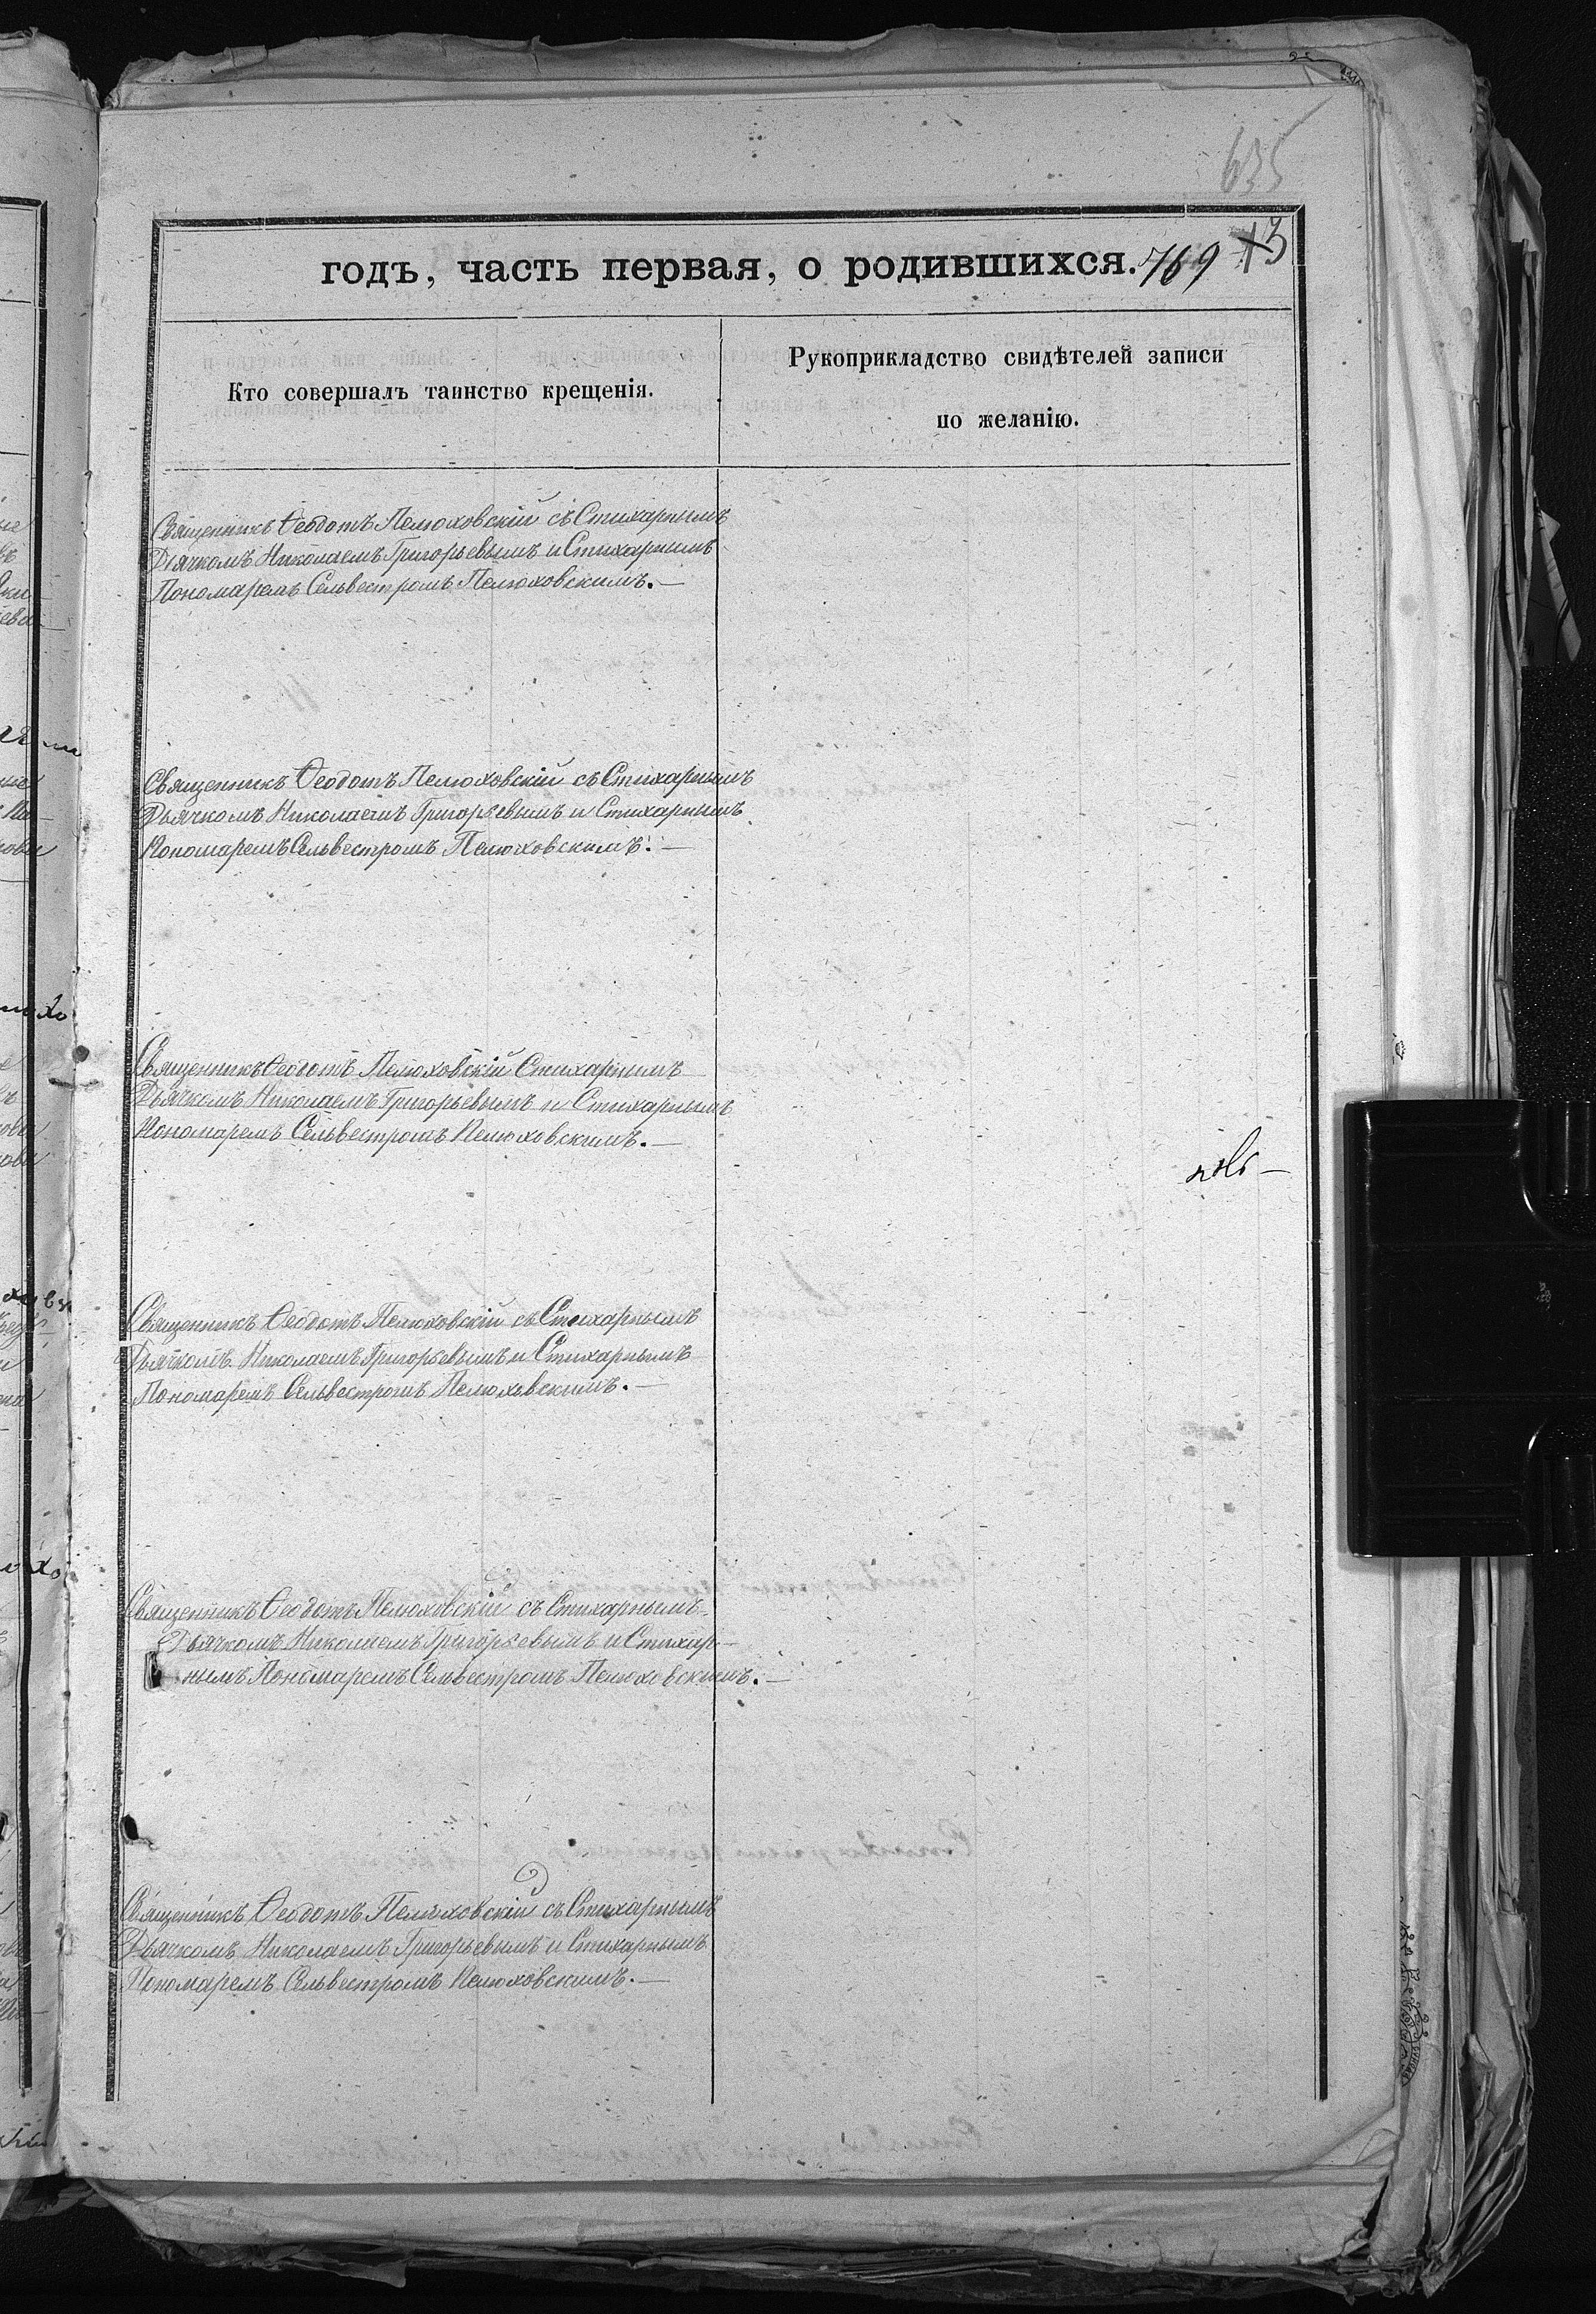 635
годъ, часть первая, о родившихся. 769 13
Кто совершалъ таинство крещенія.
Рукоприкладство свидѣтелей записи
по желанію.
Священникъ Ѳеодотъ Пелюховскій съ Стихарнымъ
Дьячкомъ Николаемъ Григорьевымъ и Стихарнымъ
Пономаремъ Сельвестромъ Пелюховскимъ. —
Священникъ Ѳеодотъ Пелюховскій съ Стихарнымъ
Дьячкомъ Николаемъ Григорьевымъ и Стихарнымъ
Пономаремъ Сельвестромъ Пелюховскимъ. —
Священникъ Ѳеодотъ Пелюховскій Стихарнымъ
Дьячкомъ Николаемъ Григорьевымъ и Стихарнымъ
Пономаремъ Сельвестромъ Пелюховскимъ. —
Священникъ Ѳеодотъ Пелюховскій съ Стихарнымъ
Дьячкомъ Николаемъ Григорьевымъ и Стихарнымъ
Пономаремъ Сельвестромъ Пелюховскимъ. —
Священникъ Ѳеодотъ Пелюховскій съ Стихарнымъ
Дьячкомъ Николаемъ Григорьевымъ и Стихар-
нымъ Пономаремъ Сельвестромъ Пелюховскимъ. —
Священникъ Ѳеодотъ Пелюховскій съ Стихарнымъ
Дьячкомъ Николаемъ Григорьевымъ и Стихарнымъ
Пономаремъ Сельвестромъ Пелюховскимъ. —